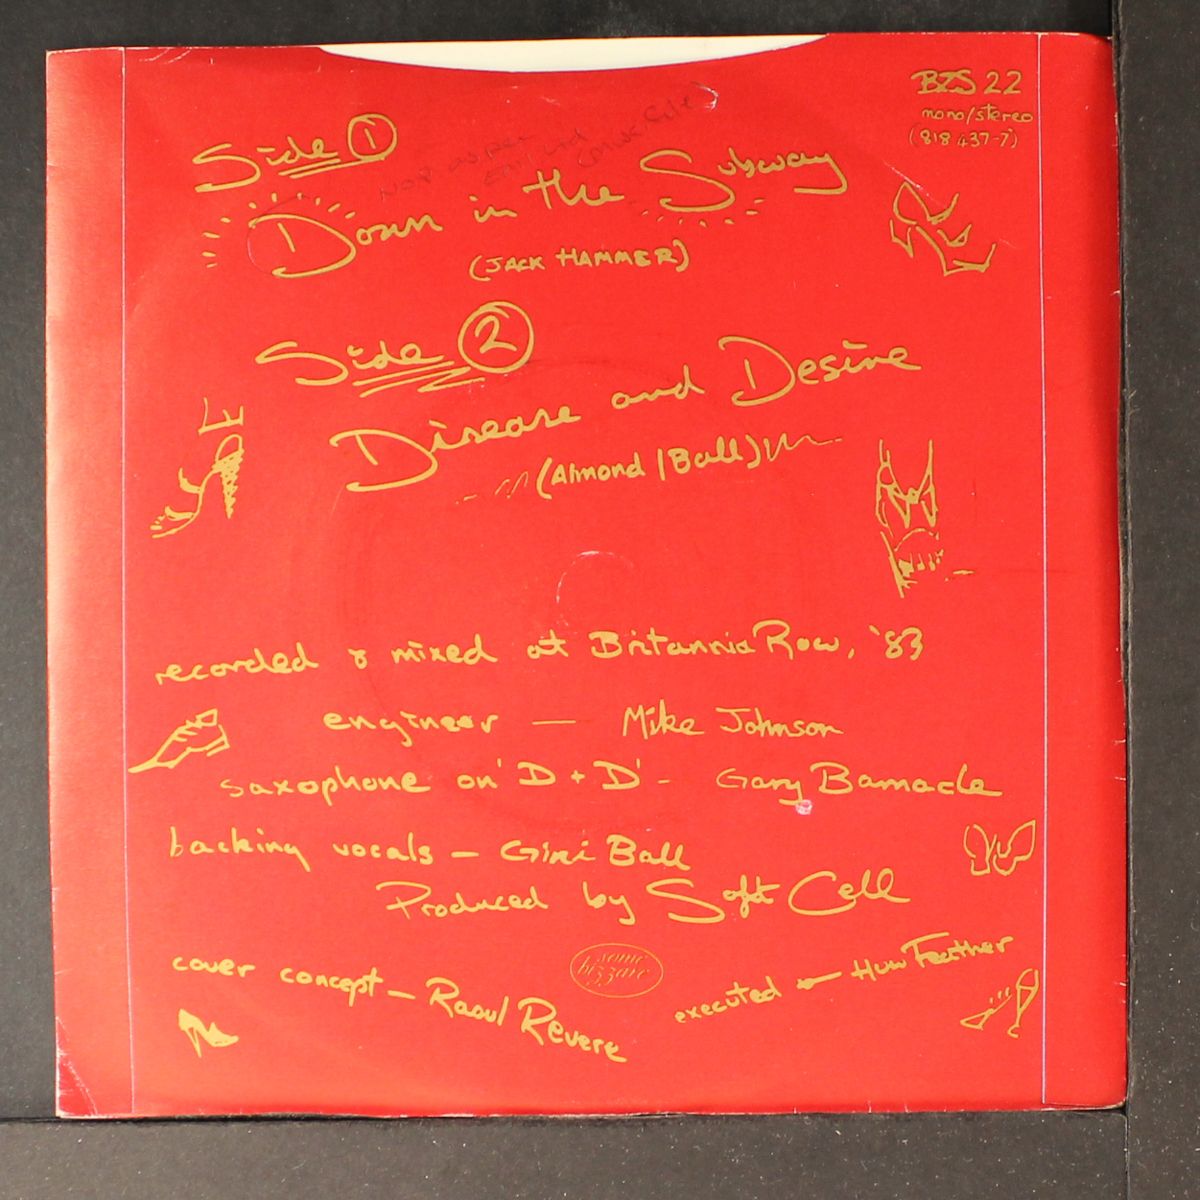 BZS 22
mono/stereo
(818 437-7)
Side 1
Down in the Subway
(JACK HAMMER)
Side 2
Disease and Desire
(Almond / Ball)
recorded & mixed at Britannia Row, '83
engineer — Mike Johnson
saxophone on 'D + D' - Gary Barnacle
backing vocals — Gini Ball
Produced by Soft Cell
some bizzare
cover concept — Raoul Revere
executed — Huw Feather